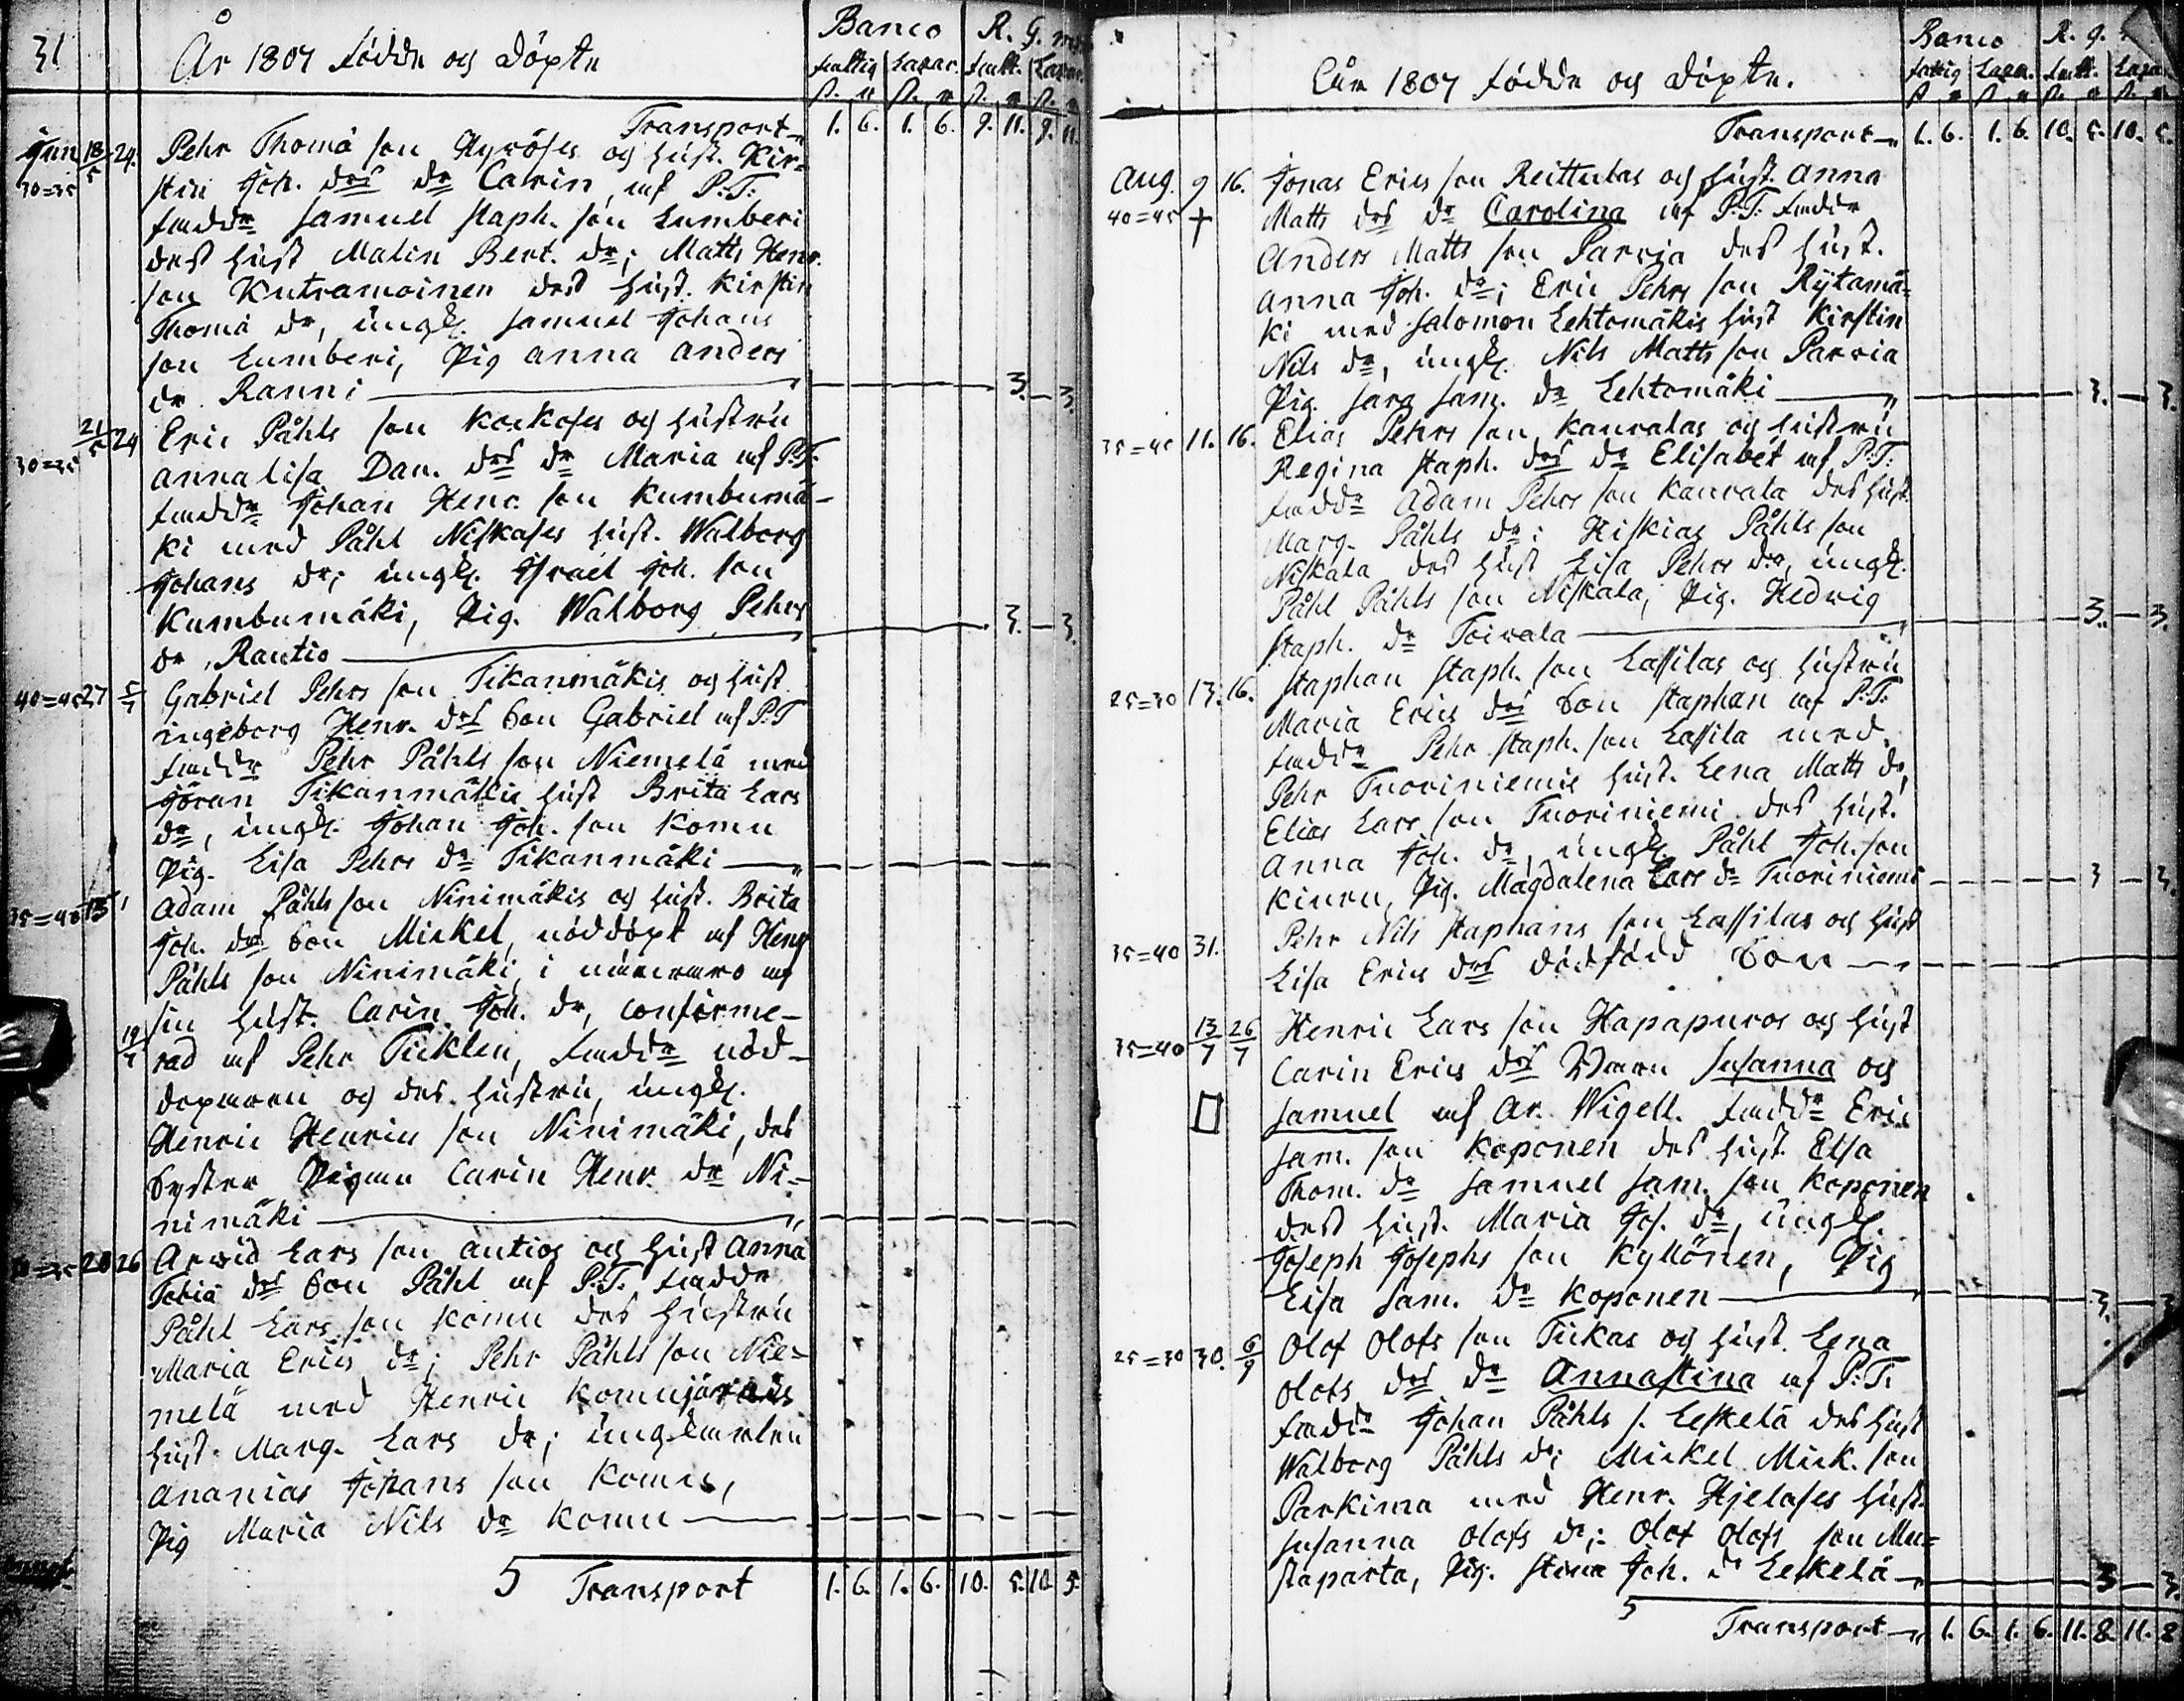 31
År 1807 födde og döpte
Banco R. G. m
fattig Lazar. fatt. Lazar.
Transport 1. 6. 1. 6. 9. 11. 9. 11.
Jun 18/5 24. Pehr Thomä son Hyröses og hust. Kir-
30=35 stin Joh. drs dr Carin af P.T:
fadd. Samuel Staph. son Lumberi
des hust Malin Bert. dr; Matts Henr.
son Kutramoinen des hust. Kirstin
Thomä dr, ungk. Samuel Johans
son Lumberi, Pig anna anders
dr Ranni 3. 3.
21/5 24 Eric Påhls son Koskoses og hustru
30=35 annalisa Dan. drs dr Maria af P.T:
fadd. Johan Henr. son Kumbumä-
ki med Påhl Niskases hust. Walborg
Johans dr; ungk. Israel Joh. son
Kumbumäki, Pig. Walborg Pehrs
dr, Rautio 3. 3.
40=45 27 5/7 Gabriel Pehrs son Tikanmäkis og hust
ingeborg Henr. drs Son Gabriel af P.T
fadd. Pehr Påhls son Niemelä med
Jöran Tikanmäkis hust Brita Lars
dr, ungk. Johan Joh. son Komu
Pig. Lisa Pehrs dr Tikanmäki
35=40 Adam Påhls son Ninimäkis og hust. Brita
Joh. drs Son Mickel, nöddöpt af Henr
Påhls son Ninimäki i närvaro af
sin hust. Carin Joh. dr, confirme-
19/7 rad af Pehr Ticklen, fadd. nöd-
döparen og des hustru, ungk.
Henric Henrics son Ninimäki, des
Syster Pigan Carin Henr. dr Ni-
nimäki
28 26 Arvid Lars son Antios og hust Anna
Tobiä drs Son Påhl af P.T. fadd.
Påhl Lars son Komu des hustru
Maria Erics dr; Pehr Påhls son Nie-
melä med Henric Komujärvis
hust. Marg. Lars dr; ungkarlen
Ananias Johans son Komu,
Pig Maria Nils dr Komu
5 Transport 1. 6. 1. 6. 10. 5. 10. 5.
År 1807 födde og döpte.
Banco R. G.
fattig Lazar. fatt. Lazar
Transport 1. 6. 1. 6. 10. 5. 10. 5.
Aug. 9 16. Jonas Erics son Reittulas og hust. Anna
40=45 † Matts drs dr Carolina af P.T: fadd.
Anders Matts son Parvia des hust.
Anna Joh. dr; Eric Pehrs son Rytämä-
ki med Salomon Lehtomäkis hust Kirstin
Nils dr, ungk. Nils Matts son Parvia
Pig. Sara Sam. dr Lehtomäki 3. 3.
35=40 11. 16. Elias Pehrs son Kauralas og hustru
Regina Staph. drs dr Elisabet af P.T:
fadd. Adam Pehrs son Kaurala des hust.
Marg. Påhls dr: Hiskias Påhls son
Niskala des hust Lisa Pehrs dr, ungk.
Påhl Påhls son Niskala, Pig. Hedwig
Staph. dr Toiwala 3. 3.
25=30 13. 16. Staphan Staph. son Lassilas og hustru
Maria Erics drs Son Staphan af P.T:
fadd. Pehr Staph. son Lassila med
Pehr Tuoriniemis hust. Lena Matts dr,
Elias Lars son Tuoriniemi des hust.
Anna Joh. dr, ungk. Påhl Joh. son
Kinen, Pig. Magdalena Lars dr Tuoriniemi 3 3.
35=40 31. Pehr Nils Staphans son Lassilas og hust
Lisa Erics drs dödfödd Son
35=40 13/7 26/7 Henric Lars son Hapapuros og hust
Carin Erics drs Susanna og
Samuel af Ar. Wigell. fadd. Eric
Sam. son Koponen des hust Elsa
Thom. dr Samuel Sam. son Koponen
dess hust. Maria Jos. dr, ungk.
Joseph Josephs son Kyllönen, Pig
Lisa Sam. dr Koponen 3. 3
25=30 30. 6/9 Olof Olofs son Tickas og hust. Lena
Olofs drs dr Annastina af P.T:
fadd. Johan Påhls s. Leskelä des hust
Walborg Påhls dr; Mickel Mick. son
Parkima med Henr. Hjelases hust.
Susanna Olofs dr; Olof Olofs son Mu-
staparta, Pig. Stina Joh. dr Leskelä 3 3
5
Transport 1. 6. 1. 6. 11. 8. 11. 8